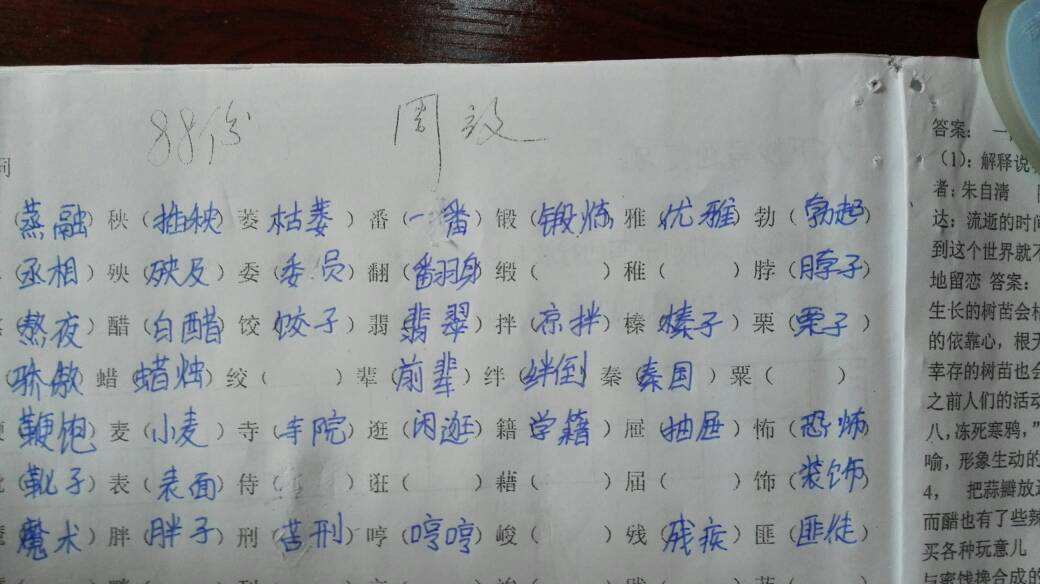 88份 周毅
词
（蒸融）秧（插秧）萎（枯萎）番（一番）锻（锻炼）雅（优雅）勃（勃起）
（丞相）殃（殃及）委（委员）翻（翻身）缎（ ）稚（ ）脖（脖子）
（熬夜）醋（白醋）饺（饺子）翡（翡翠）拌（凉拌）榛（榛子）栗（栗子）
（骄傲）蜡（蜡烛）绞（ ）辈（前辈）绊（绊倒）秦（秦国）粟（ ）
（鞭炮）麦（小麦）寺（寺院）逛（闲逛）籍（学籍）屉（抽屉）怖（恐怖）
（靴子）表（表面）侍（ ）诳（ ）藉（ ）届（ ）饰（装饰）
（魔术）胖（胖子）刑（苦刑）哼（哼哼）峻（ ）残（残疾）匪（匪徒）
答案： 一
（1）：解释说
者：朱自清
达：流逝的时间
到这个世界就不
地留恋 答案：
生长的树苗会
的依靠心，根
幸存的树苗也会
之前人们的活动
八，冻死寒鸦，”
喻，形象生动的
4， 把蒜瓣放
而醋也有了些辣
买各种玩意儿
与蜜饯搀合成的